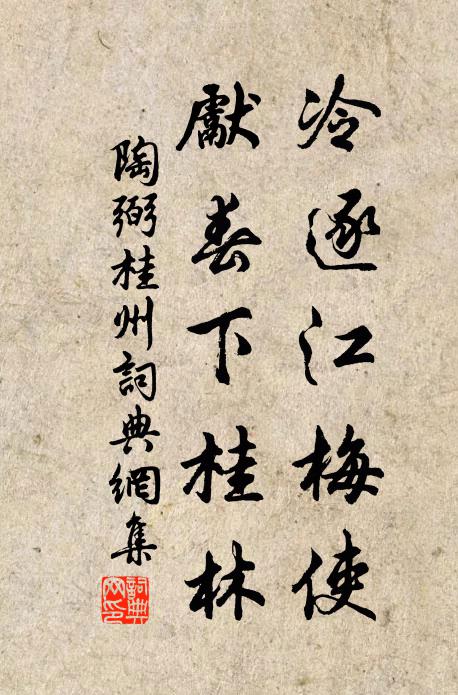 冷逐江梅使
獻春下桂林
陶弼桂州詞典網集